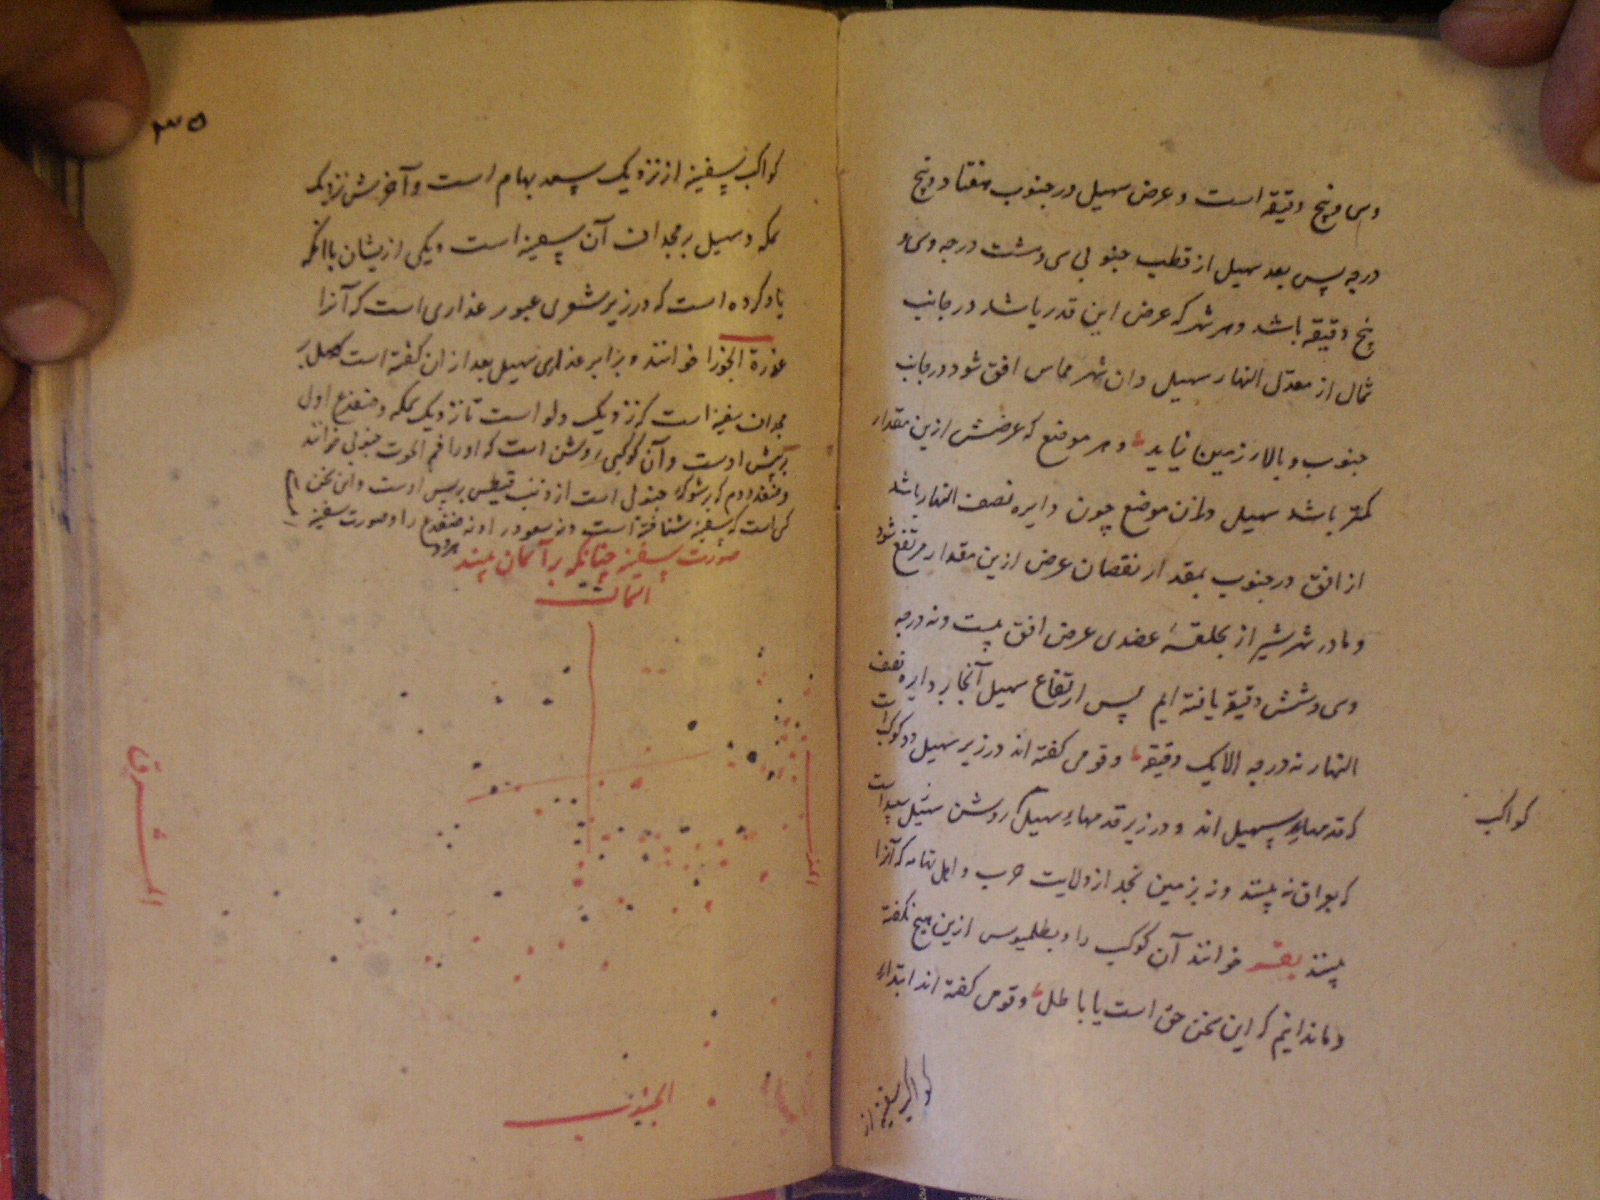 وسی و پنج دقیقه است و عرض سهیل در جنوب هفتاد و پنج
درجه پس بعد سهیل از قطب جنوبی سی و شت درجه و سی و
پنج دقیقه باشد و هر شهر که عرض این قدر باشد در جانب
شمال از معدل النهار سهیل دران شهر مماس افق شود در جانب
جنوب و بالاء زمین نیاید و هر موضع که عرضش ازین مقدار
کمتر باشد سهیل دران موضع چون دایره نصف النهار باشد
از افق در جنوب بمقدار نقصان عرض ازین مقدار مرتفع شود
و ما در شهر شیراز بحلقهٔ عضدی عرض افق بیست و نه درجه
وسی و شش دقیقه یافته ایم پس ارتفاع سهیل آنجا بر دایره نصف
النهار نه درجه الا یک دقیقه و قومی گفته اند در زیر سهیل دو کوکب است
که قدمهاء سهیل اند و در زیر قدمهاء سهیل کواکب روشن سپید است
که بعراق نه بینند و نه بزمین نجد از ولایت عرب و اهل تهامه که آنرا
بینند بقر خوانند آن کوکب را و بطلمیوس ازین هیچ نگفته
و ما ندانیم که این سخن حق است یا باطل و قومی گفته اند ابتداء
کواکب سفینه از
کواکب
۳۵
کواکب سفینه از نزدیک سعد بهام است و آخرش نزدیک
سمکه و سهیل بر مجداف آن سفینه است و یکی ازیشان با آنکه
یاد کرده است که در زیر شعری عبور عذاری است که آنرا
عذرة الجوزا خوانند و برابر عذاری سهیل بعد از ان گفته است سهیل بر
مجداف سفینه است که نزدیک دلو است تا نزدیک سمکه و ضفدع اول
بر پیش اوست و آن کوکبی روشن است که او را فم الحوت جنوبی خوانند
و ضفدع دوم که بر شوکهٔ جنوبی است از ذنب قیطس بر پس اوست و این سخن
کسی است که نه سفینه شناخته است و نه سعود را و نه ضفدع را و صورت سفینه
صورت سفینه چنانکه بر آسمان بینند
الشمال
المشرق
المغرب
الجنوب